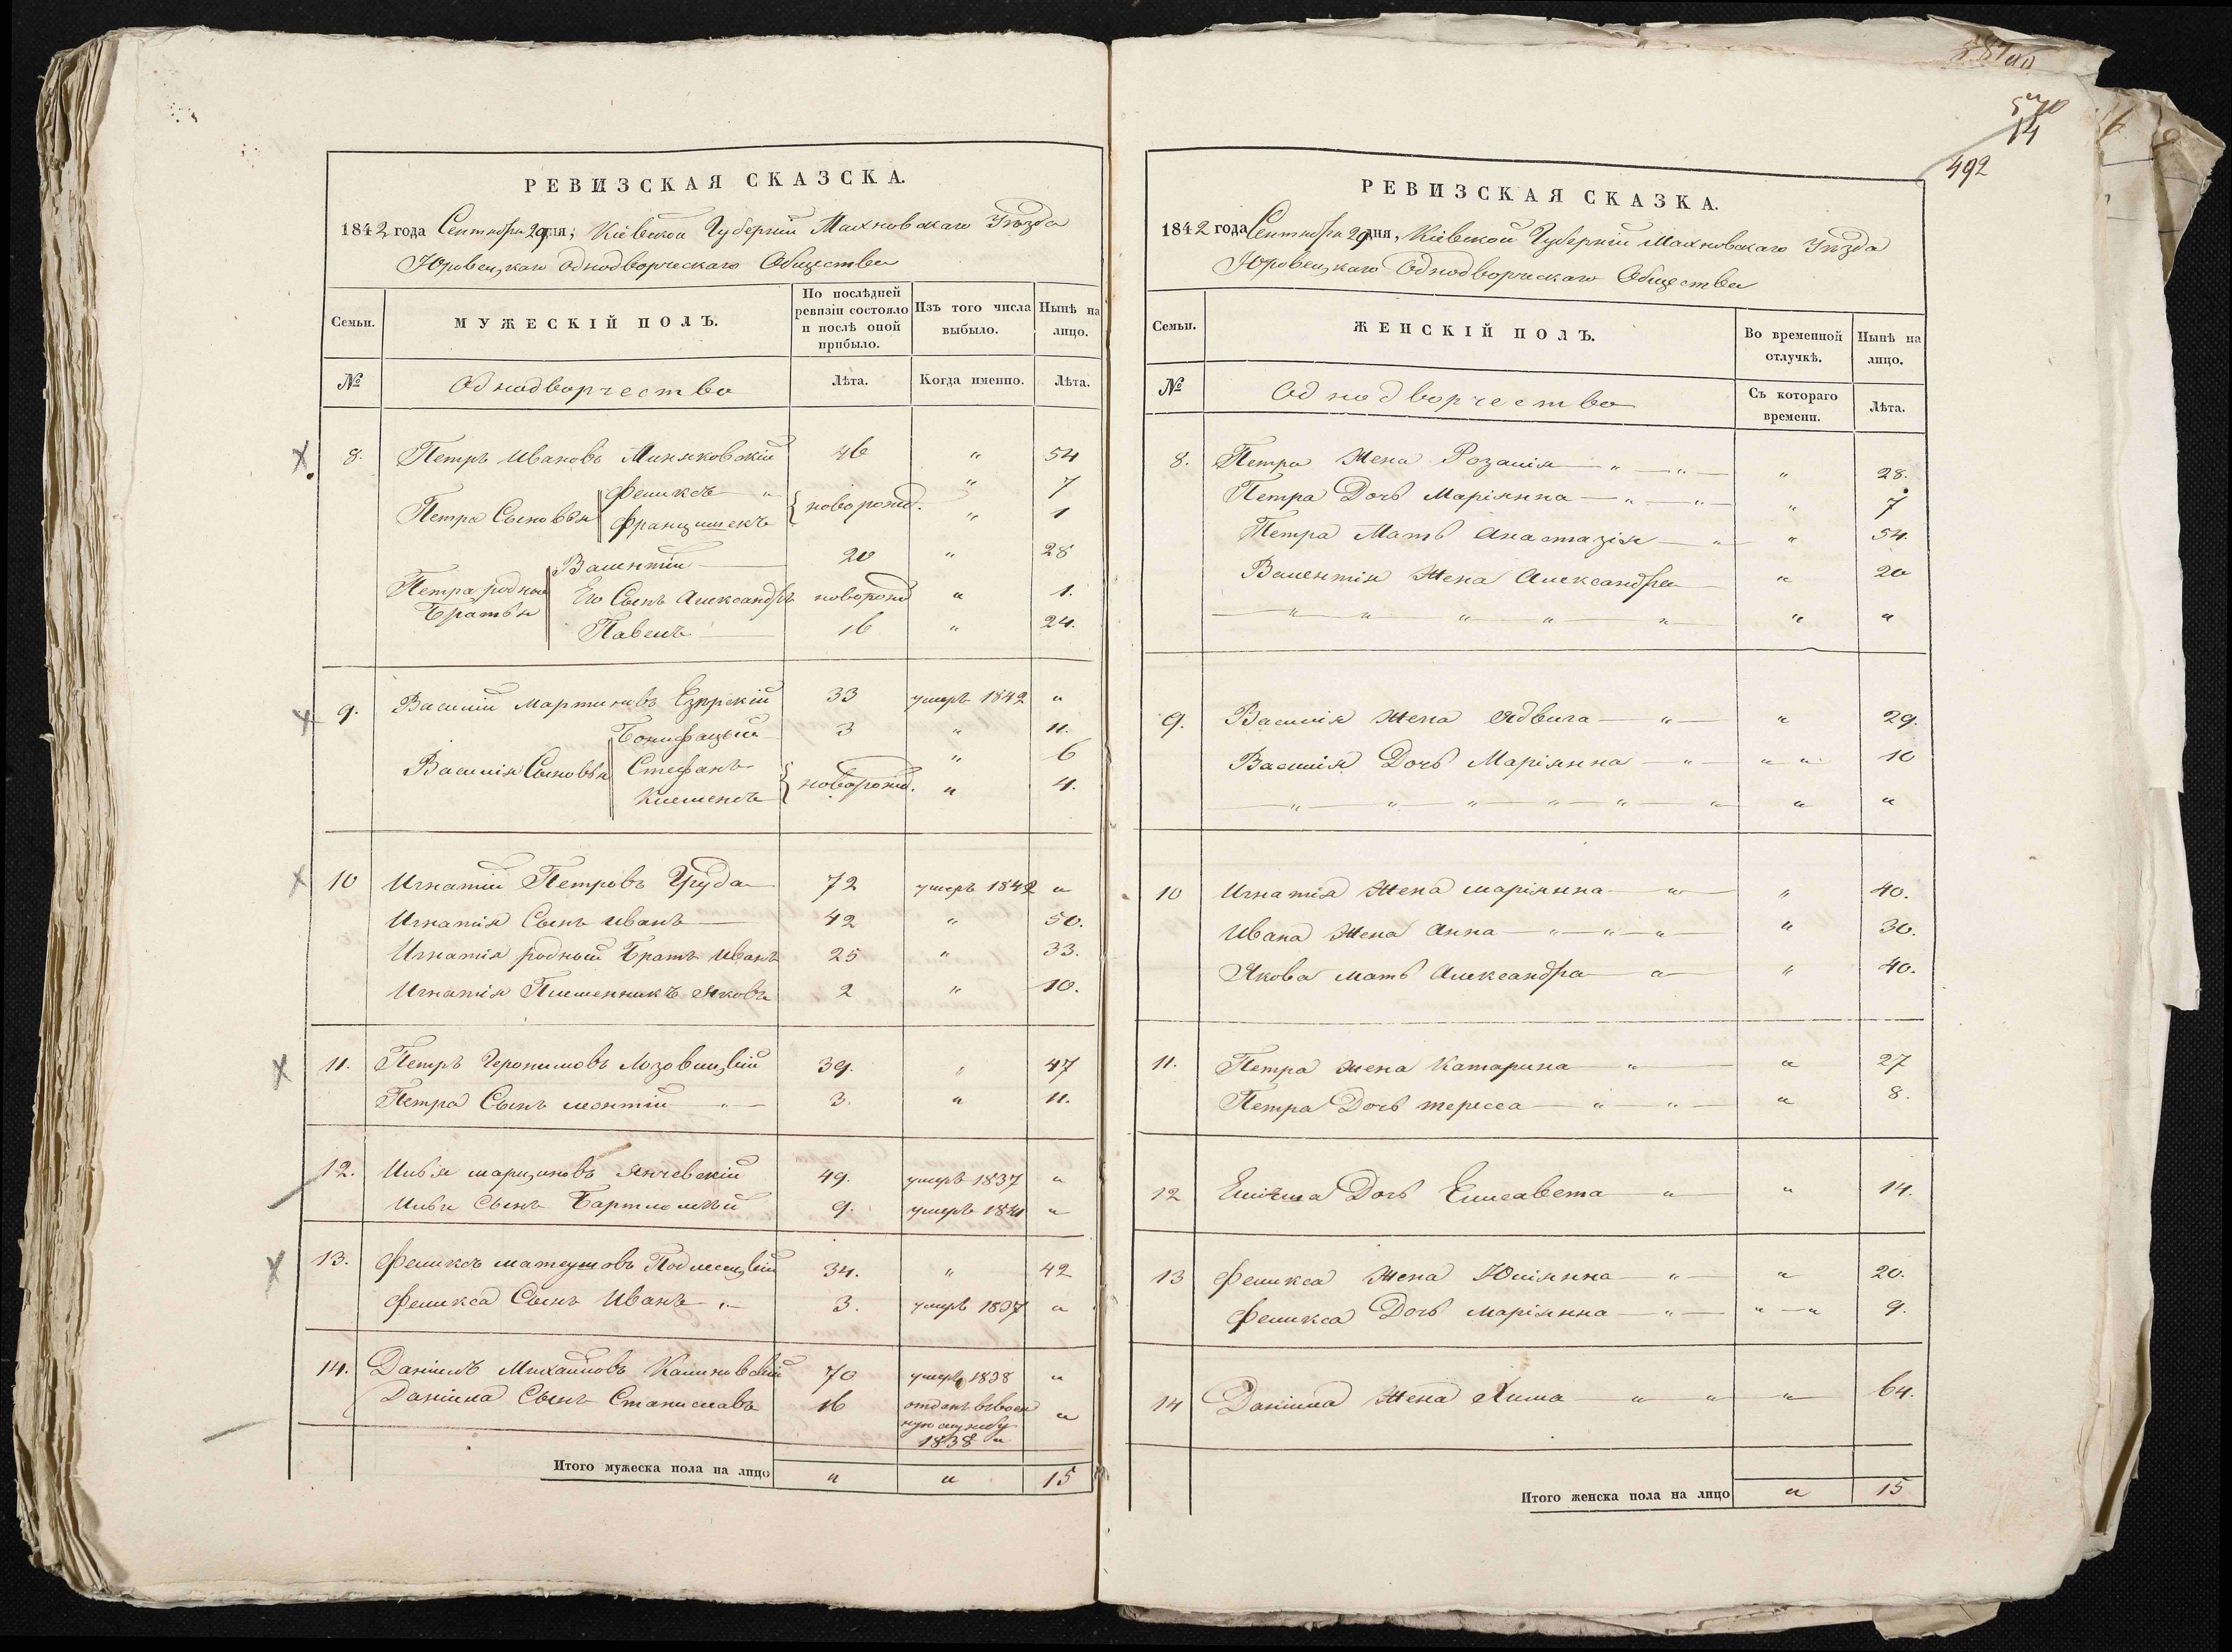 РЕВИЗСКАЯ СКАЗСКА.
1842 года Сентября 29 дня, Кіевской Губерніи Махновскаго Уѣзда
Юровецкаго Однодворческаго Общества
Семьи. МУЖЕСКІЙ ПОЛЪ. По послѣдней ревизіи состояло и послѣ оной прибыло. Изъ того числа выбыло. Нынѣ на лицо.
№ Однодворчество Лѣта. Когда именно. Лѣта.
8. Петръ Ивановъ Миньковскій 46 " 54
Петра Сыновья Феликсъ " новорожд. " 7
Францишекъ " 1
Петра родные Братья Валентій 20 " 28
Его Сынъ Александръ новорожд " 1.
Павелъ 16 " 24.
9. Василій Мартиновъ Езѣрскій 33 умеръ 1842 "
Василія Сыновья Бонифацый 3 " 11.
Стефанъ новорожд. " 6
Клеменсъ " 4.
10 Игнатій Петровъ Груда 72 умеръ 1842 "
Игнатія Сынъ Иванъ 42 " 50.
Игнатія родный Братъ Иванъ 25 " 33.
Игнатія Племенникъ Яковъ 2 " 10.
11. Петръ Геронимовъ Лозовицкій 39. " 47
Петра Сынъ Леонтій " 3. " 11.
12. Илья Марциновъ Янчевскій 49. умеръ 1837 "
Ильи Сынъ Бартломѣй 9. умеръ 1841 "
13. Феликсъ Матеушовъ Подлесецкій 34. " 42
Феликса Сынъ Иванъ " 3. умеръ 1837 "
14. Даніилъ Михайловъ Калиновскій 70 умеръ 1838 "
Даніила Сынъ Станиславъ 16 отданъ въ военную службу 1838 " "
Итого мужеска пола на лицо " " 15
570
14
492
РЕВИЗСКАЯ СКАЗКА.
1842 года Сентября 29 дня, Кіевской Губерніи Махновскаго Уѣзда
Юровецкаго Однодворческаго Общества
Семьи. ЖЕНСКІЙ ПОЛЪ. Во временной отлучкѣ. Нынѣ на лицо.
№ Однодворчество Съ котораго времени. Лѣта.
8. Петра Жена Розалія " " " 28.
Петра Дочь Маріянна " " " 7
Петра Мать Анастазія " " 54.
Валентія Жена Александра " 20
" " " " " " "
9. Василія Жена Ядвига " " 29.
Василія Дочь Маріянна " " " 10
" " " " " " " "
10 Игнатія Жена Маріянна " " 40.
Ивана Жена Анна " " " " 30.
Якова Мать Александра " " 40.
11. Петра Жена Катарина " " 27
Петра Дочь Тересса " " " 8.
12 Дочь Елисавета " " 14.
13 Феликса Жена Юліянна " " 20.
Феликса Дочь Маріянна " " " 9.
14 Даніила Жена Яхима " " " 64.
Итого женска пола на лицо " 15